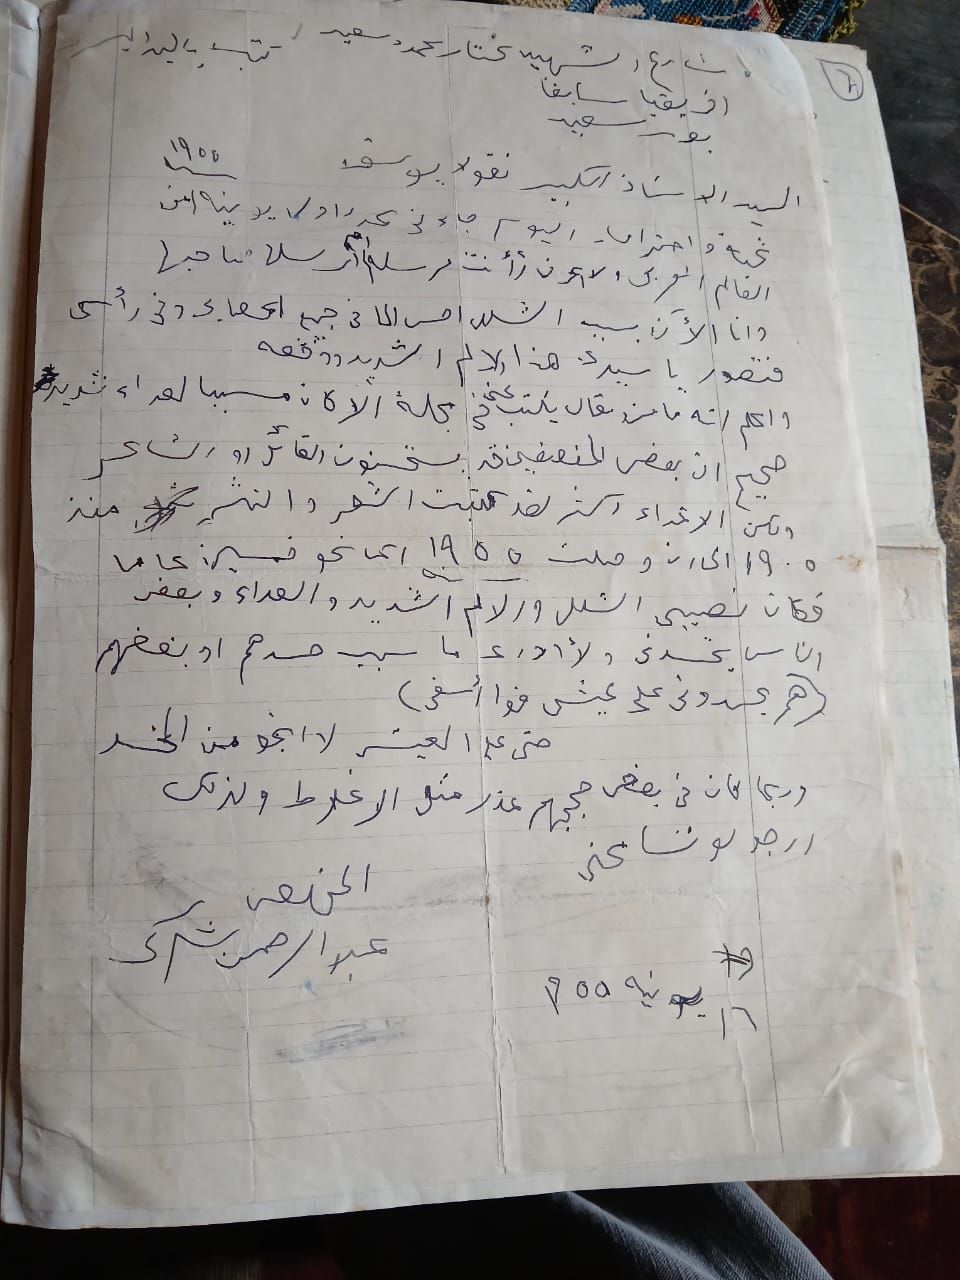 شارع الشهيد مختار محمد سعيد / تكتب باليد اليسر
افريقيا سابقا
بورسعيد
السيد الاستاذ الكبير نقولا يوسف ١٩٥٥
تحية واحتراما. اليوم جاء في عدد اول يونيه من
العالم العربى ولا اعرف أأنت مرسلها أم أرسلها صاحبها
وانا الأن بسبب الشلل احس الما في جميع اعصابى وفى رأسى
فتصور يا سيدى هذا الالم الشديد ووقعه
واعلم انه ما من مقال يكتب عنى في مجلة الا كان مسببا لعداء شديد
صحيح ان بعض المنصفين قد يستحسنون القائل او الشاعر
ولكن الاعداء اكثر لقد كتبت الشعر والنثر منذ
١٩٠٥ الى ان وصلت ١٩٥٥ اى نحو خمسين عاما
فكان نصيبى الشلل والالم الشديد والعداء وبعض
الناس يحسدنى ولا أدرى ما سبب حسدهم او بغضهم
(هم يحسدونى على عيشى فوا أسفى)
حتى على العيش لا انجو من الحسد
وربما كان في بعض حججهم عذر مثل الاغلاط ولذلك
ارجو لو تسامحنى
المخلص
عبد الرحمن شكرى
١٦ يونيه ٩٥٥